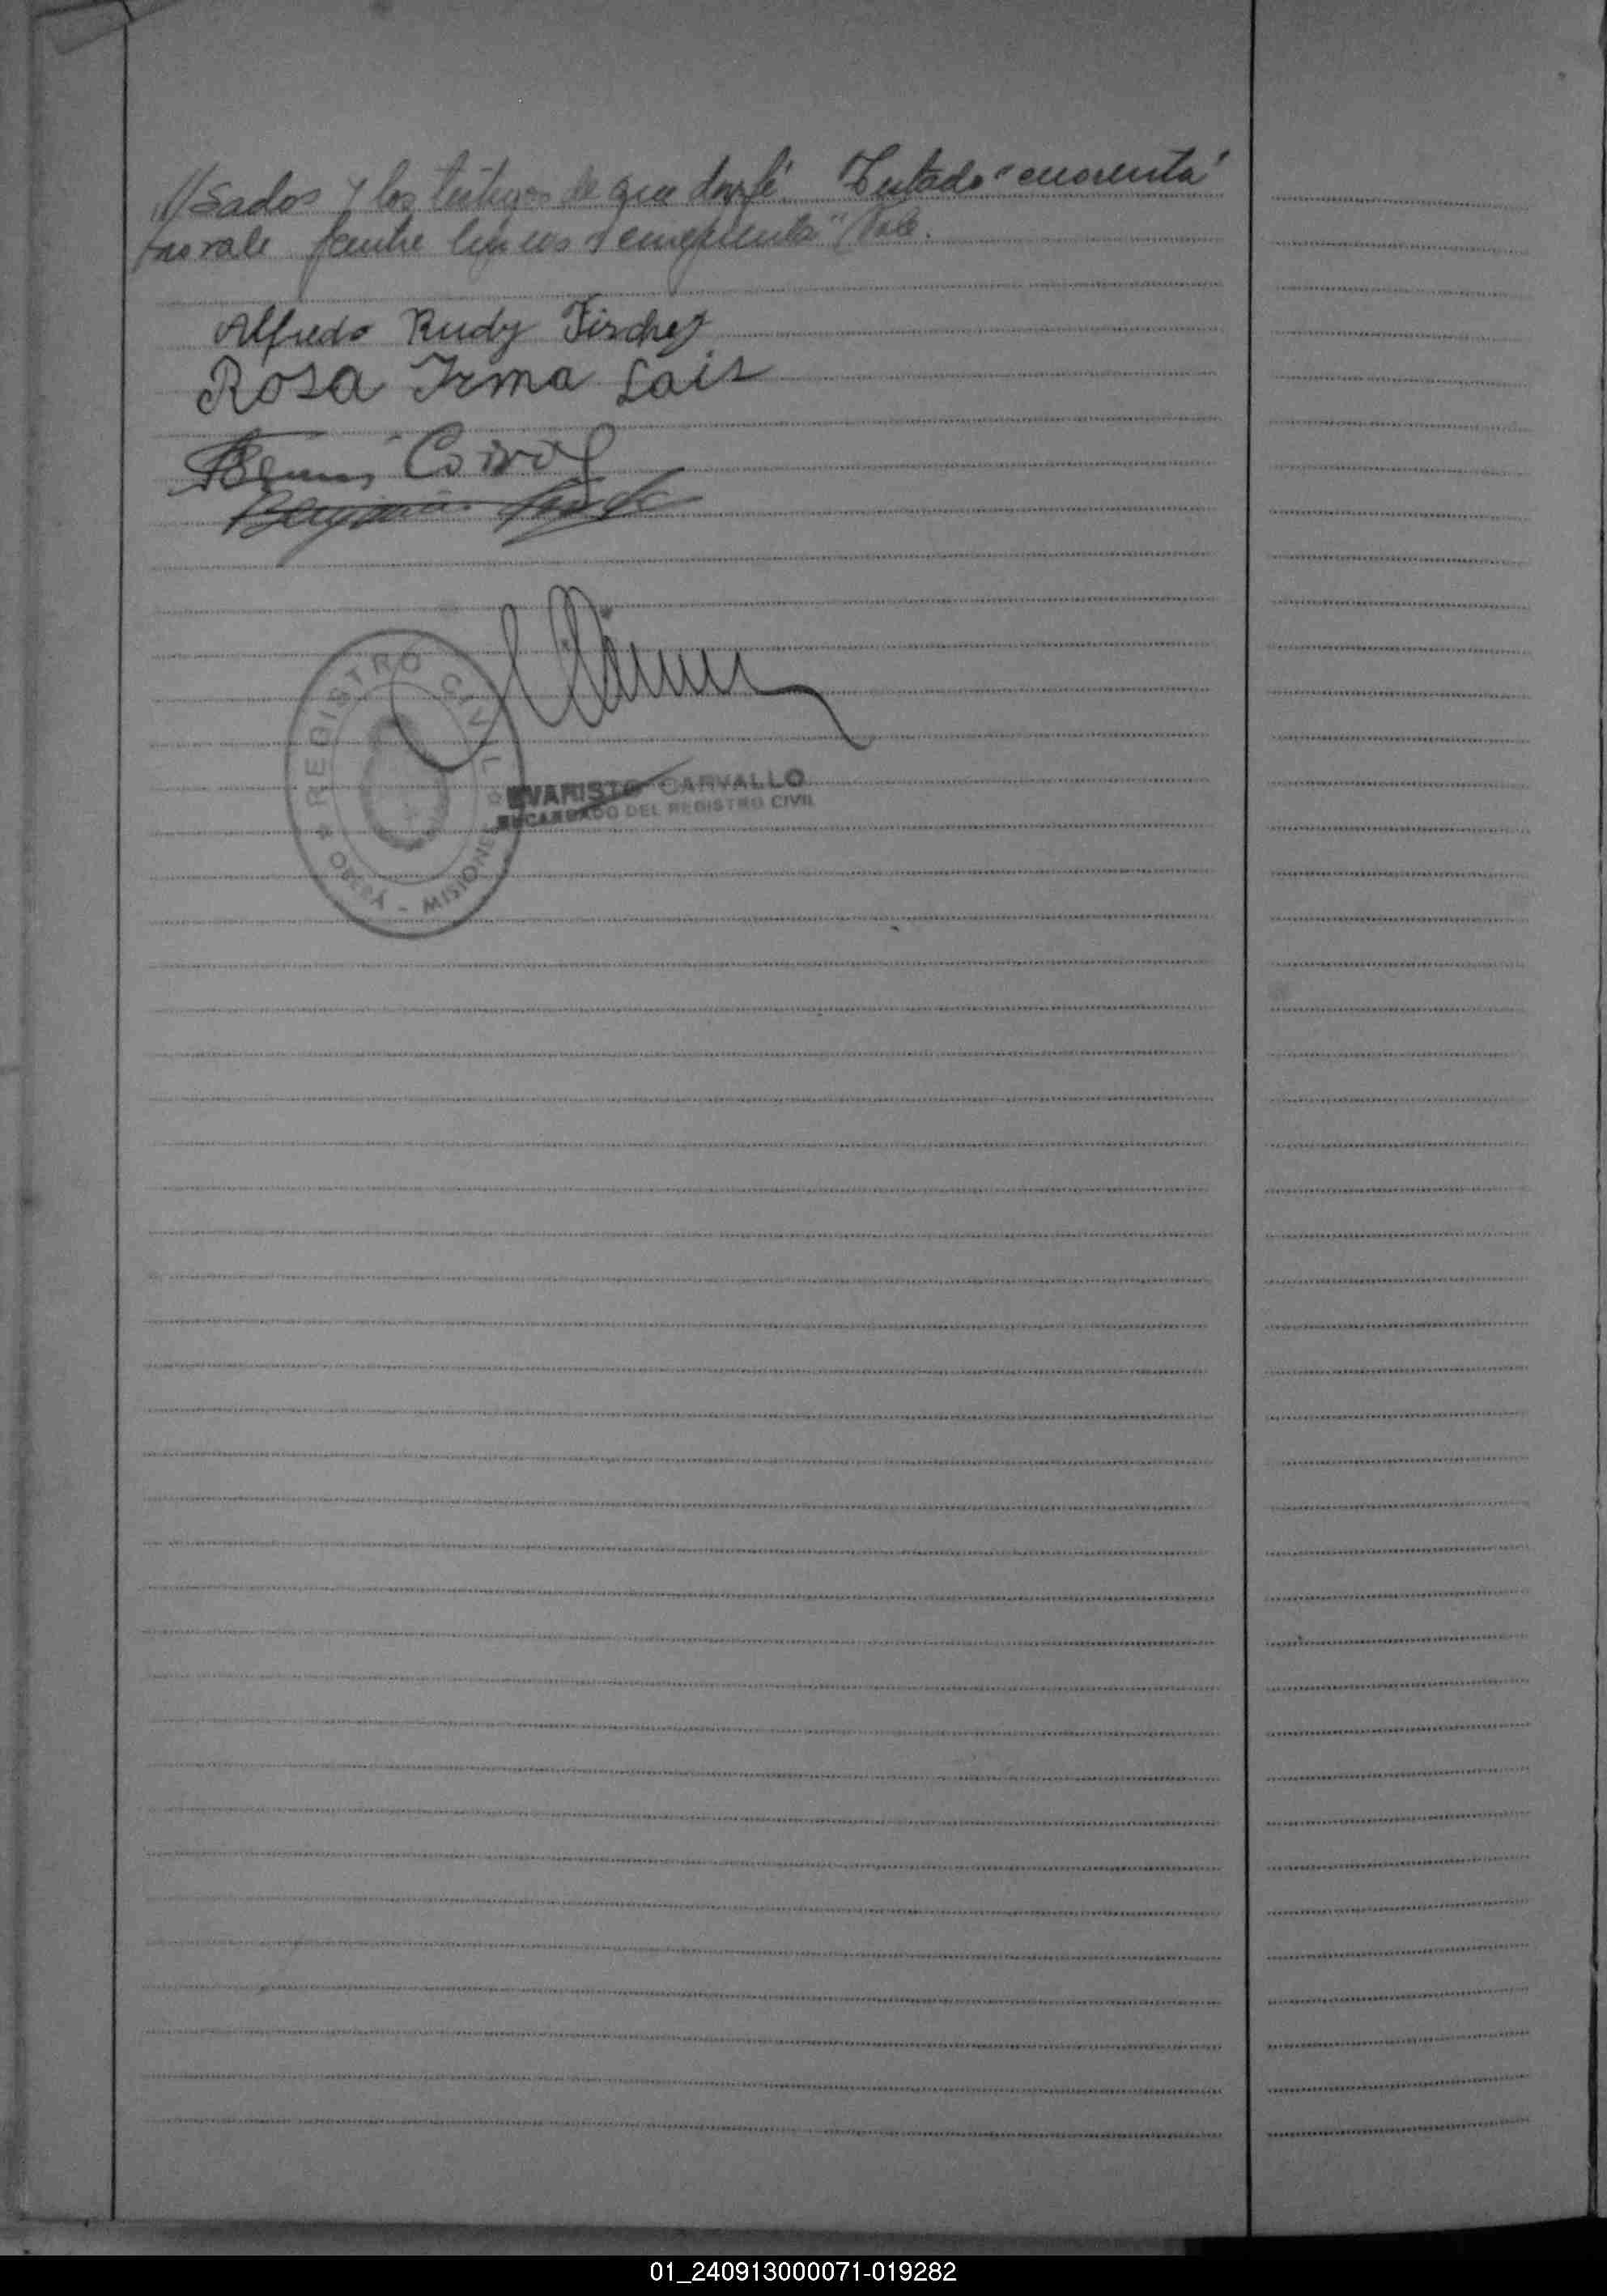 //sados y los testigos de que doy fé. Testado "cuarenta"
no vale. entre lineas "cincuenta" Vale.
Alfredo Rudy Fischer
Rosa Irma Lais
REGISTRO CIVIL
OBERÁ - MISIONES
EVARISTO CARVALLO
ENCARGADO DEL REGISTRO CIVIL
01_240913000071-019282